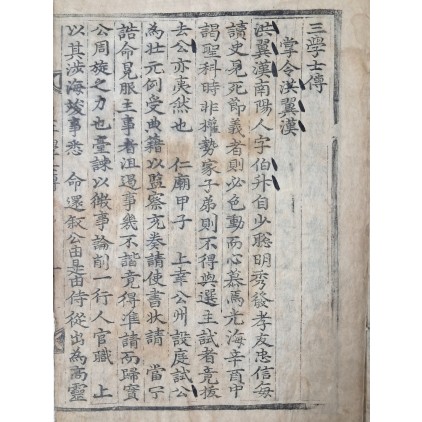 三學士傳
掌令洪翼漢
洪翼漢南陽人字伯升自少聰明秀發孝友忠信每
讀史見死節義者則必色動而心慕焉光海辛酉中
謁聖科時非權勢家子弟則不得與選主試者竟拔
去公亦夷然也 仁廟甲子 上幸公州設庭試公
為壯元例受典籍以監察充奏請使書狀請 當宁
誥命冕服主事者沮遏事幾不諧竟得准請而歸實
公周旋之力也臺諫以微事論削一行人官職 上
以其涉海竣事悉 命還敘公由是由侍從出為高靈